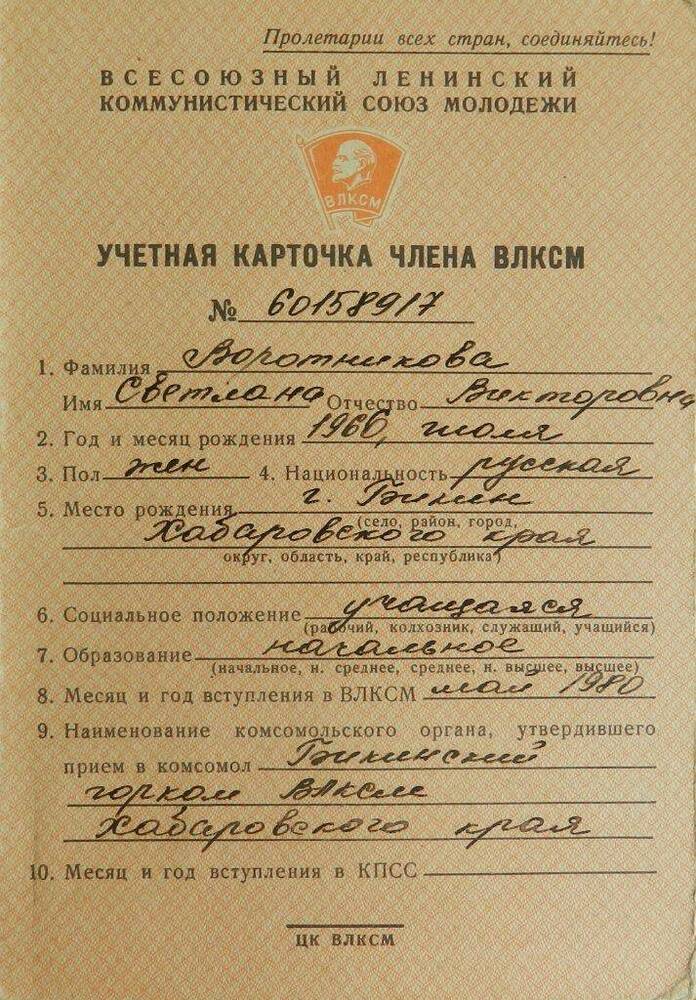 Пролетарии всех стран, соединяйтесь!
ВСЕСОЮЗНЫЙ ЛЕНИНСКИЙ
КОММУНИСТИЧЕСКИЙ СОЮЗ МОЛОДЕЖИ
ВЛКСМ
УЧЕТНАЯ КАРТОЧКА ЧЛЕНА ВЛКСМ
№ 60158917
1. Фамилия Воротникова
Имя Светлана Отчество Викторовна
2. Год и месяц рождения 1966, июля
3. Пол жен 4. Национальность русская
5. Место рождения г. Бикин
(село, район, город,
Хабаровского края
округ, область, край, республика)
6. Социальное положение учащаяся
(рабочий, колхозник, служащий, учащийся)
7. Образование начальное
(начальное, н. среднее, среднее, н. высшее, высшее)
8. Месяц и год вступления в ВЛКСМ май 1980
9. Наименование комсомольского органа, утвердившего
прием в комсомол Бикинский
горком ВЛКСМ
Хабаровского края
10. Месяц и год вступления в КПСС
ЦК ВЛКСМ